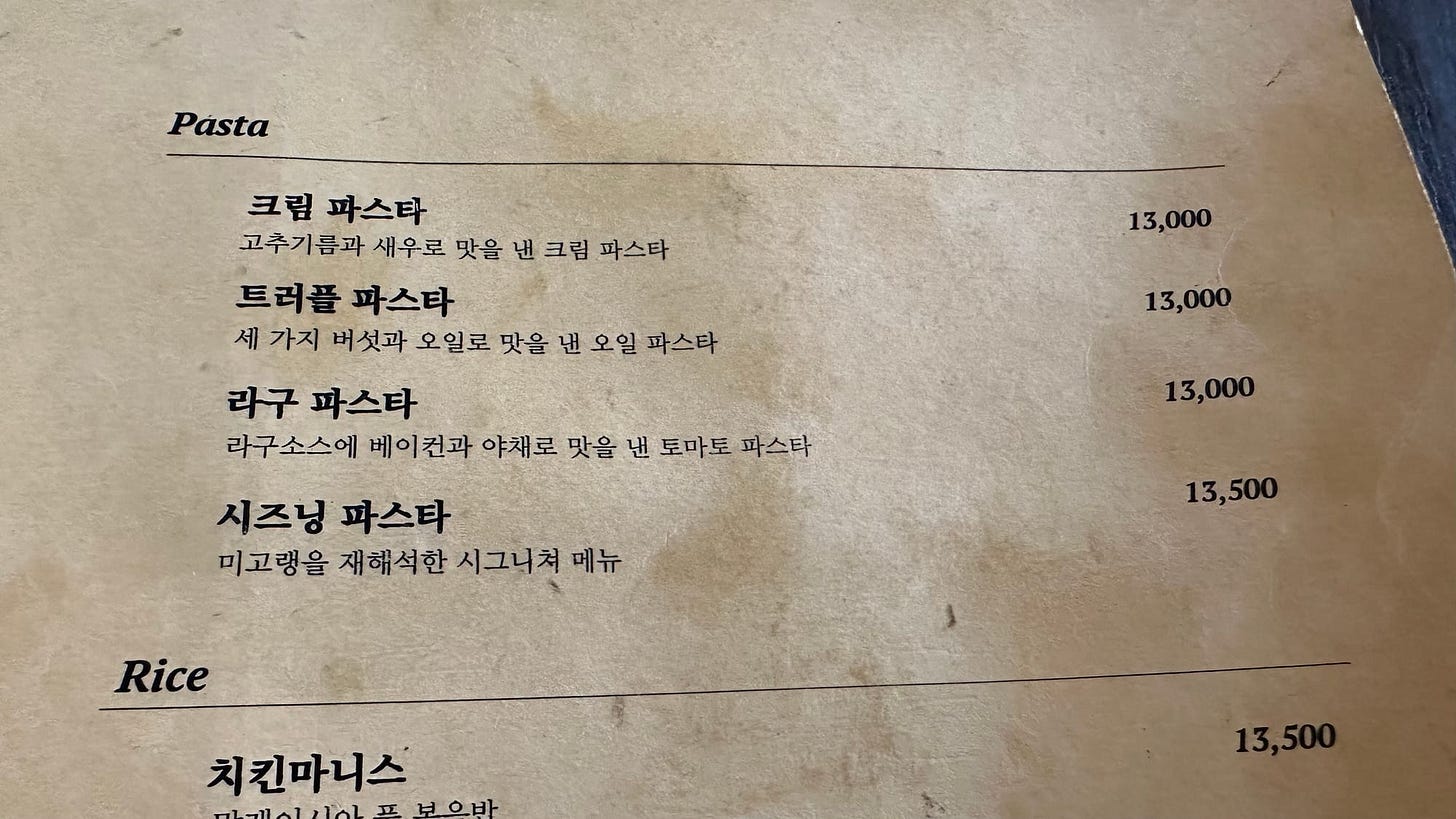 Pasta
크림 파스타 13,000
고추기름과 새우로 맛을 낸 크림 파스타
트러플 파스타 13,000
세 가지 버섯과 오일로 맛을 낸 오일 파스타
라구 파스타 13,000
라구소스에 베이컨과 야채로 맛을 낸 토마토 파스타
시즈닝 파스타 13,500
미고랭을 재해석한 시그니쳐 메뉴
Rice
치킨마니스 13,500
말레이시아 풍 볶음밥